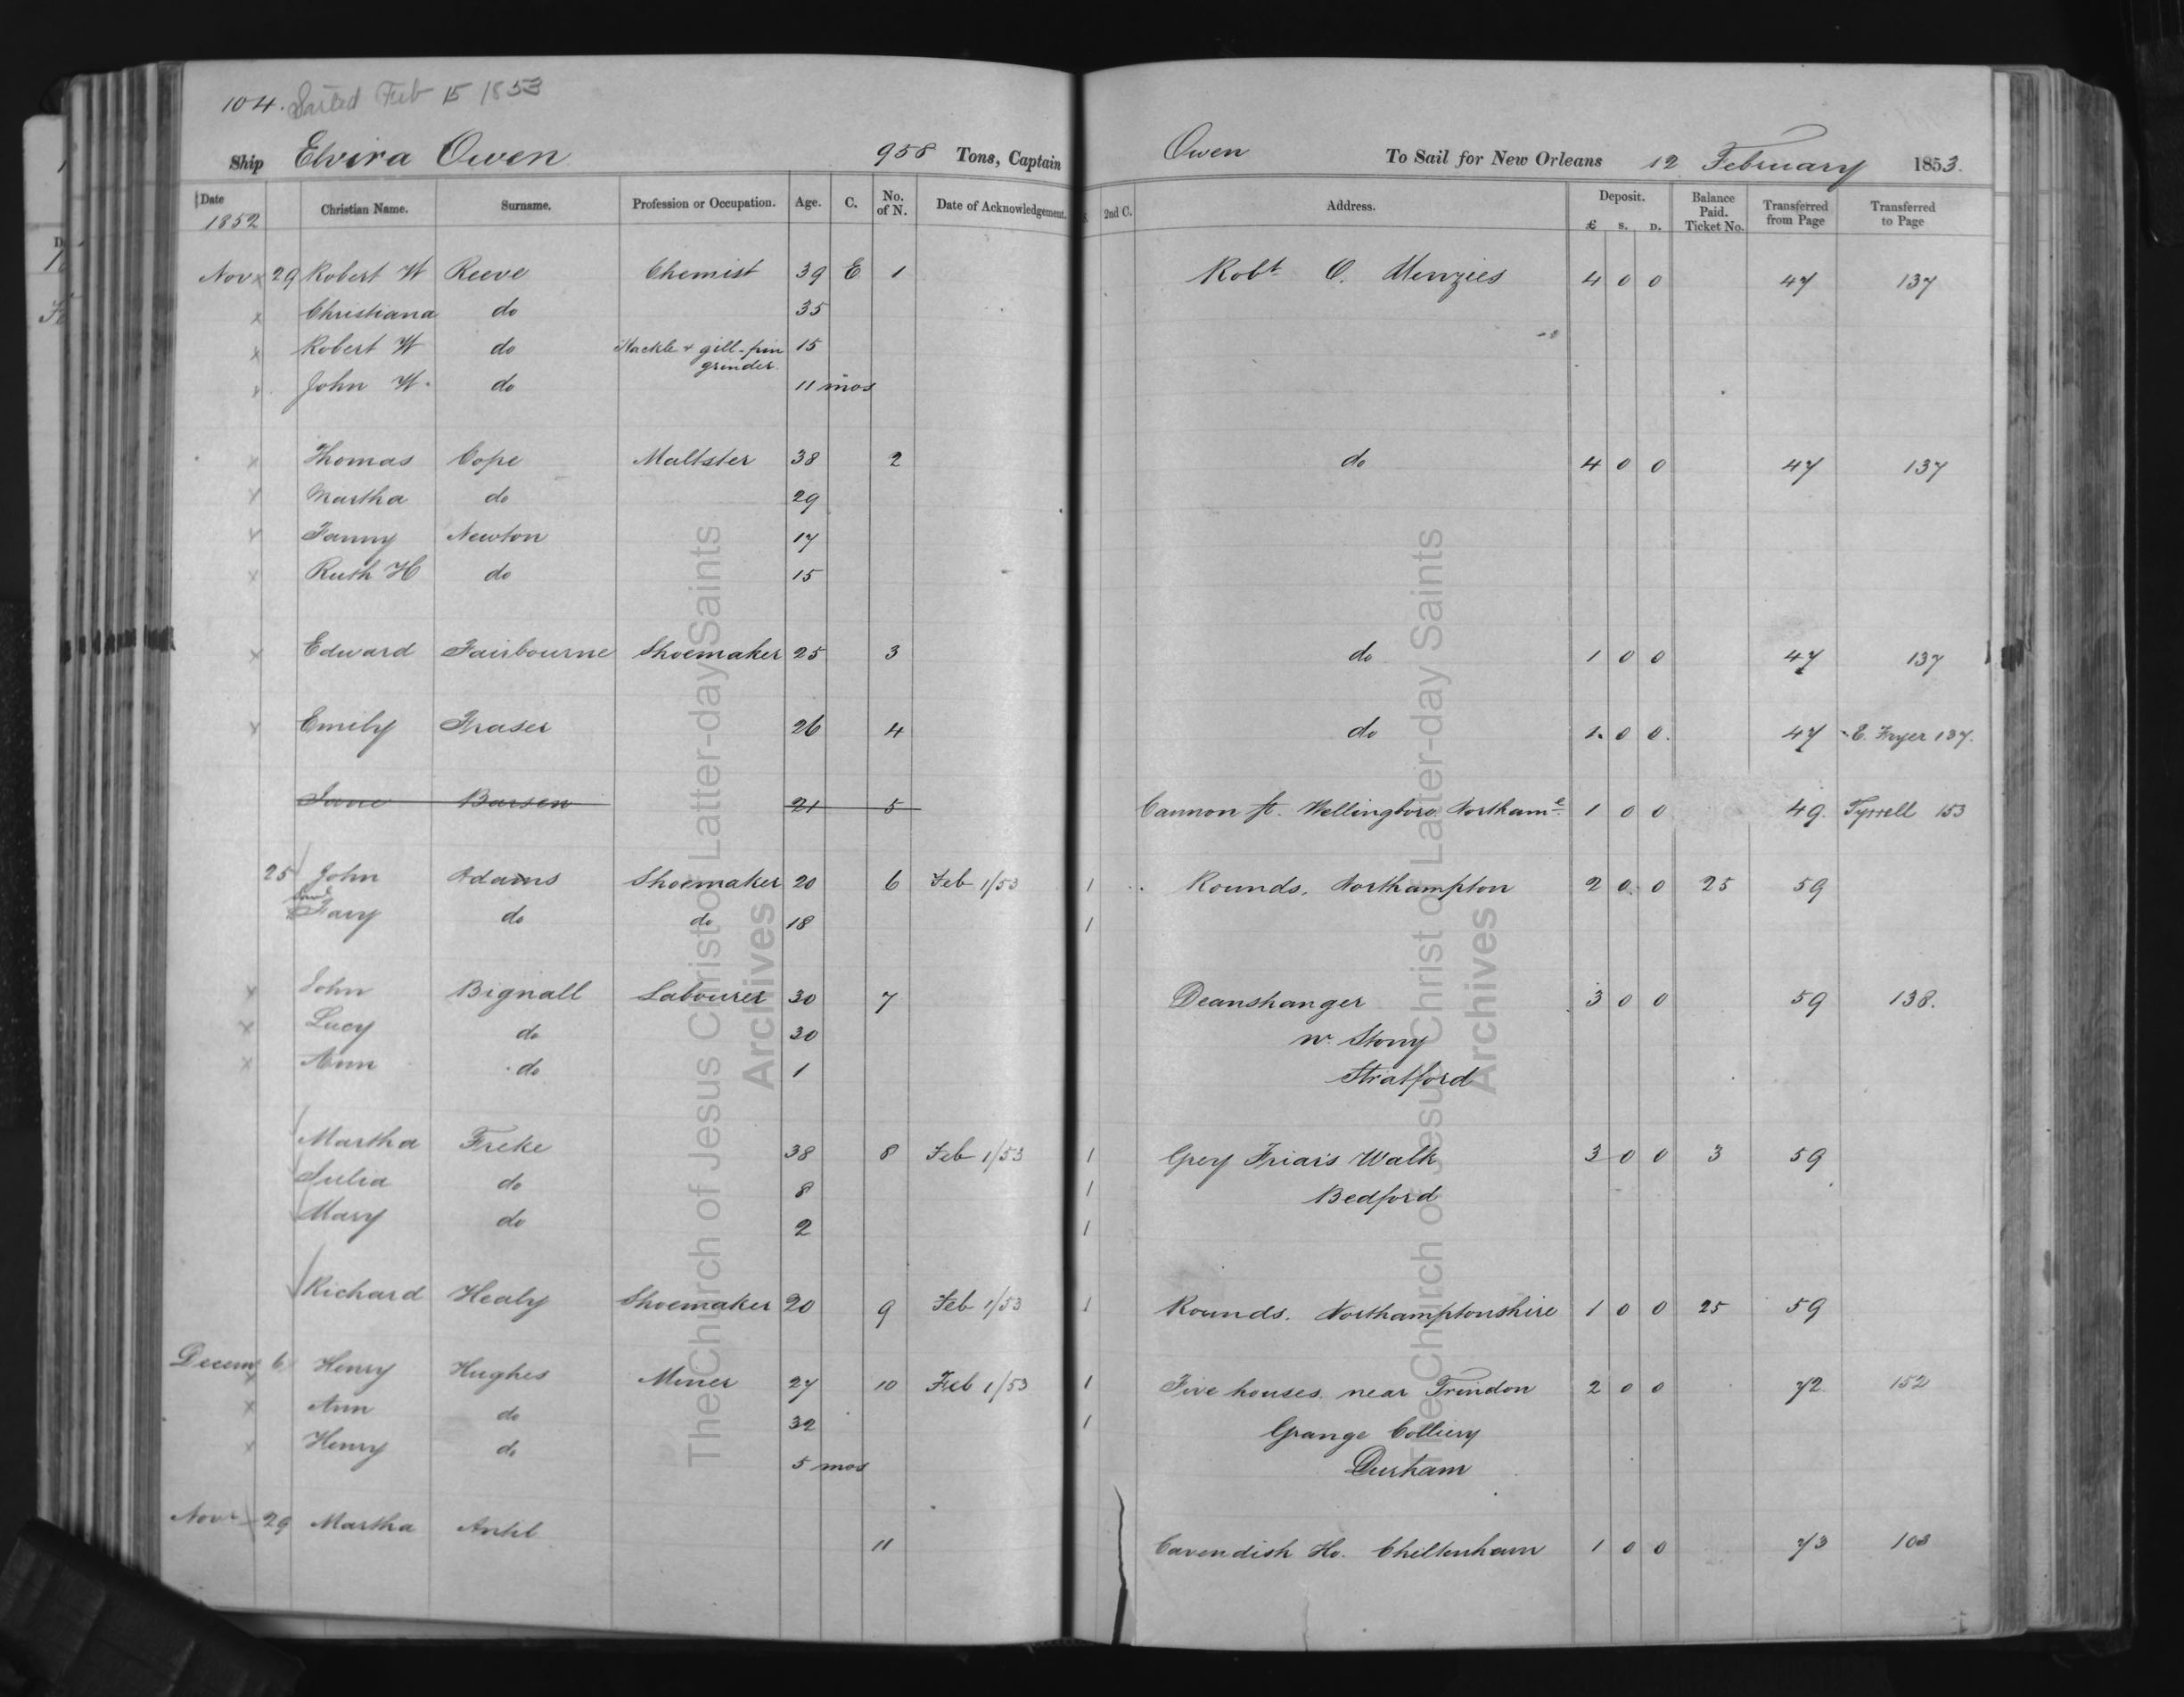 104. Sailed Feb 15 1853
Ship Elvira Owen 958 Tons, Captain Owen To Sail for New Orleans 12 February 1853.
Date 1852 Christian Name. Surname. Profession or Occupation. Age. C. No. of N. Date of Acknowledgement. 2nd C. Address. Deposit. £ S. D. Balance Paid. Ticket No. Transferred from Page Transferred to Page
Nov x 29 Robert W Reeve Chemist 39 E 1 Robt O. Menzies 4 0 0 47 137
x Christiana do 35
x Robert W do Hackle & gill-pin 15
grinder.
x John W. do 11 mos
x Thomas Cope Maltster 38 2 do 4 0 0 47 137
x Martha do 29
x Fanny Newton 17
x Ruth H do 15
x Edward Fairbourne Shoemaker 25 3 do 1 0 0 47 137
x Emily Fraser 26 4 do 1. 0 0. 47 E. Fryer 137.
Jane Barsen 21 5 Cannon St. Wellingboro. 1 0 0 49. Tyrrell 153
25 John Adams Shoemaker 20 6 Feb 1/53 1 Rounds. Northampton 2 0 0 25 59
do do 18 1
x John Bignall Labourer 30 7 Deanshanger 3 0 0 59 138.
x Lucy do 30 nr Stony
x Ann do 1 Stratford
Martha Freke 38 8 Feb 1/53 1 Grey Friars Walk 3 0 0 3 59
Julia do 8 1 Bedford
Mary do 2 1
Richard Healy Shoemaker 20 9 Feb 1/53 1 Rounds. Northamptonshire 1 0 0 25 59
Decem 6 x Henry Hughes Miner 27 10 Feb 1/53 1 Five houses near Trindon 2 0 0 72 152
x Ann do 32 1 Grange Colliery
x Henry do 5 mos Durham
Novr 29 Martha 11 Cavendish Ho. Cheltenham 1 0 0 73 108
The Church of Jesus Christ of Latter-day Saints
Archives
The Church of Jesus Christ of Latter-day Saints
Archives